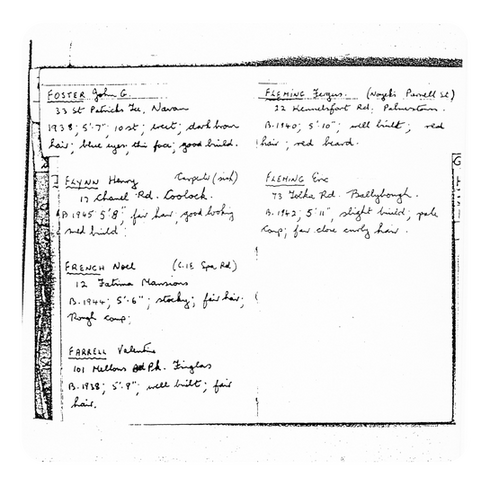 FOSTER John G.
33 St Patricks Tce, Navan
1938; 5'-7"; 10st; erect; dark brown
hair; blue eyes, thin face; good build.
FLYNN Henry Carpenter (sick)
17 Chanel Rd. Coolock.
B. 1945 5'8"; fair hair; good looking
med build
FRENCH Noel (C.I.E Spa Rd)
12 Fatima Mansions
B. 1944; 5'-6"; stocky; fair hair;
Rough comp;
FARRELL Valentine
101 Mellows Pk. Finglas
B. 1938; 5'-9"; well built; fair
hair.
FLEMING Fergus. (Purcell St)
22 Kennelsfort Rd. Palmerstown.
B. 1940; 5'-10"; well built; red
hair; red beard.
FLEMING Eric
73 Tolka Rd. Ballybough.
B. 1942; 5'-11"; slight build; pale
comp; fair close curly hair.